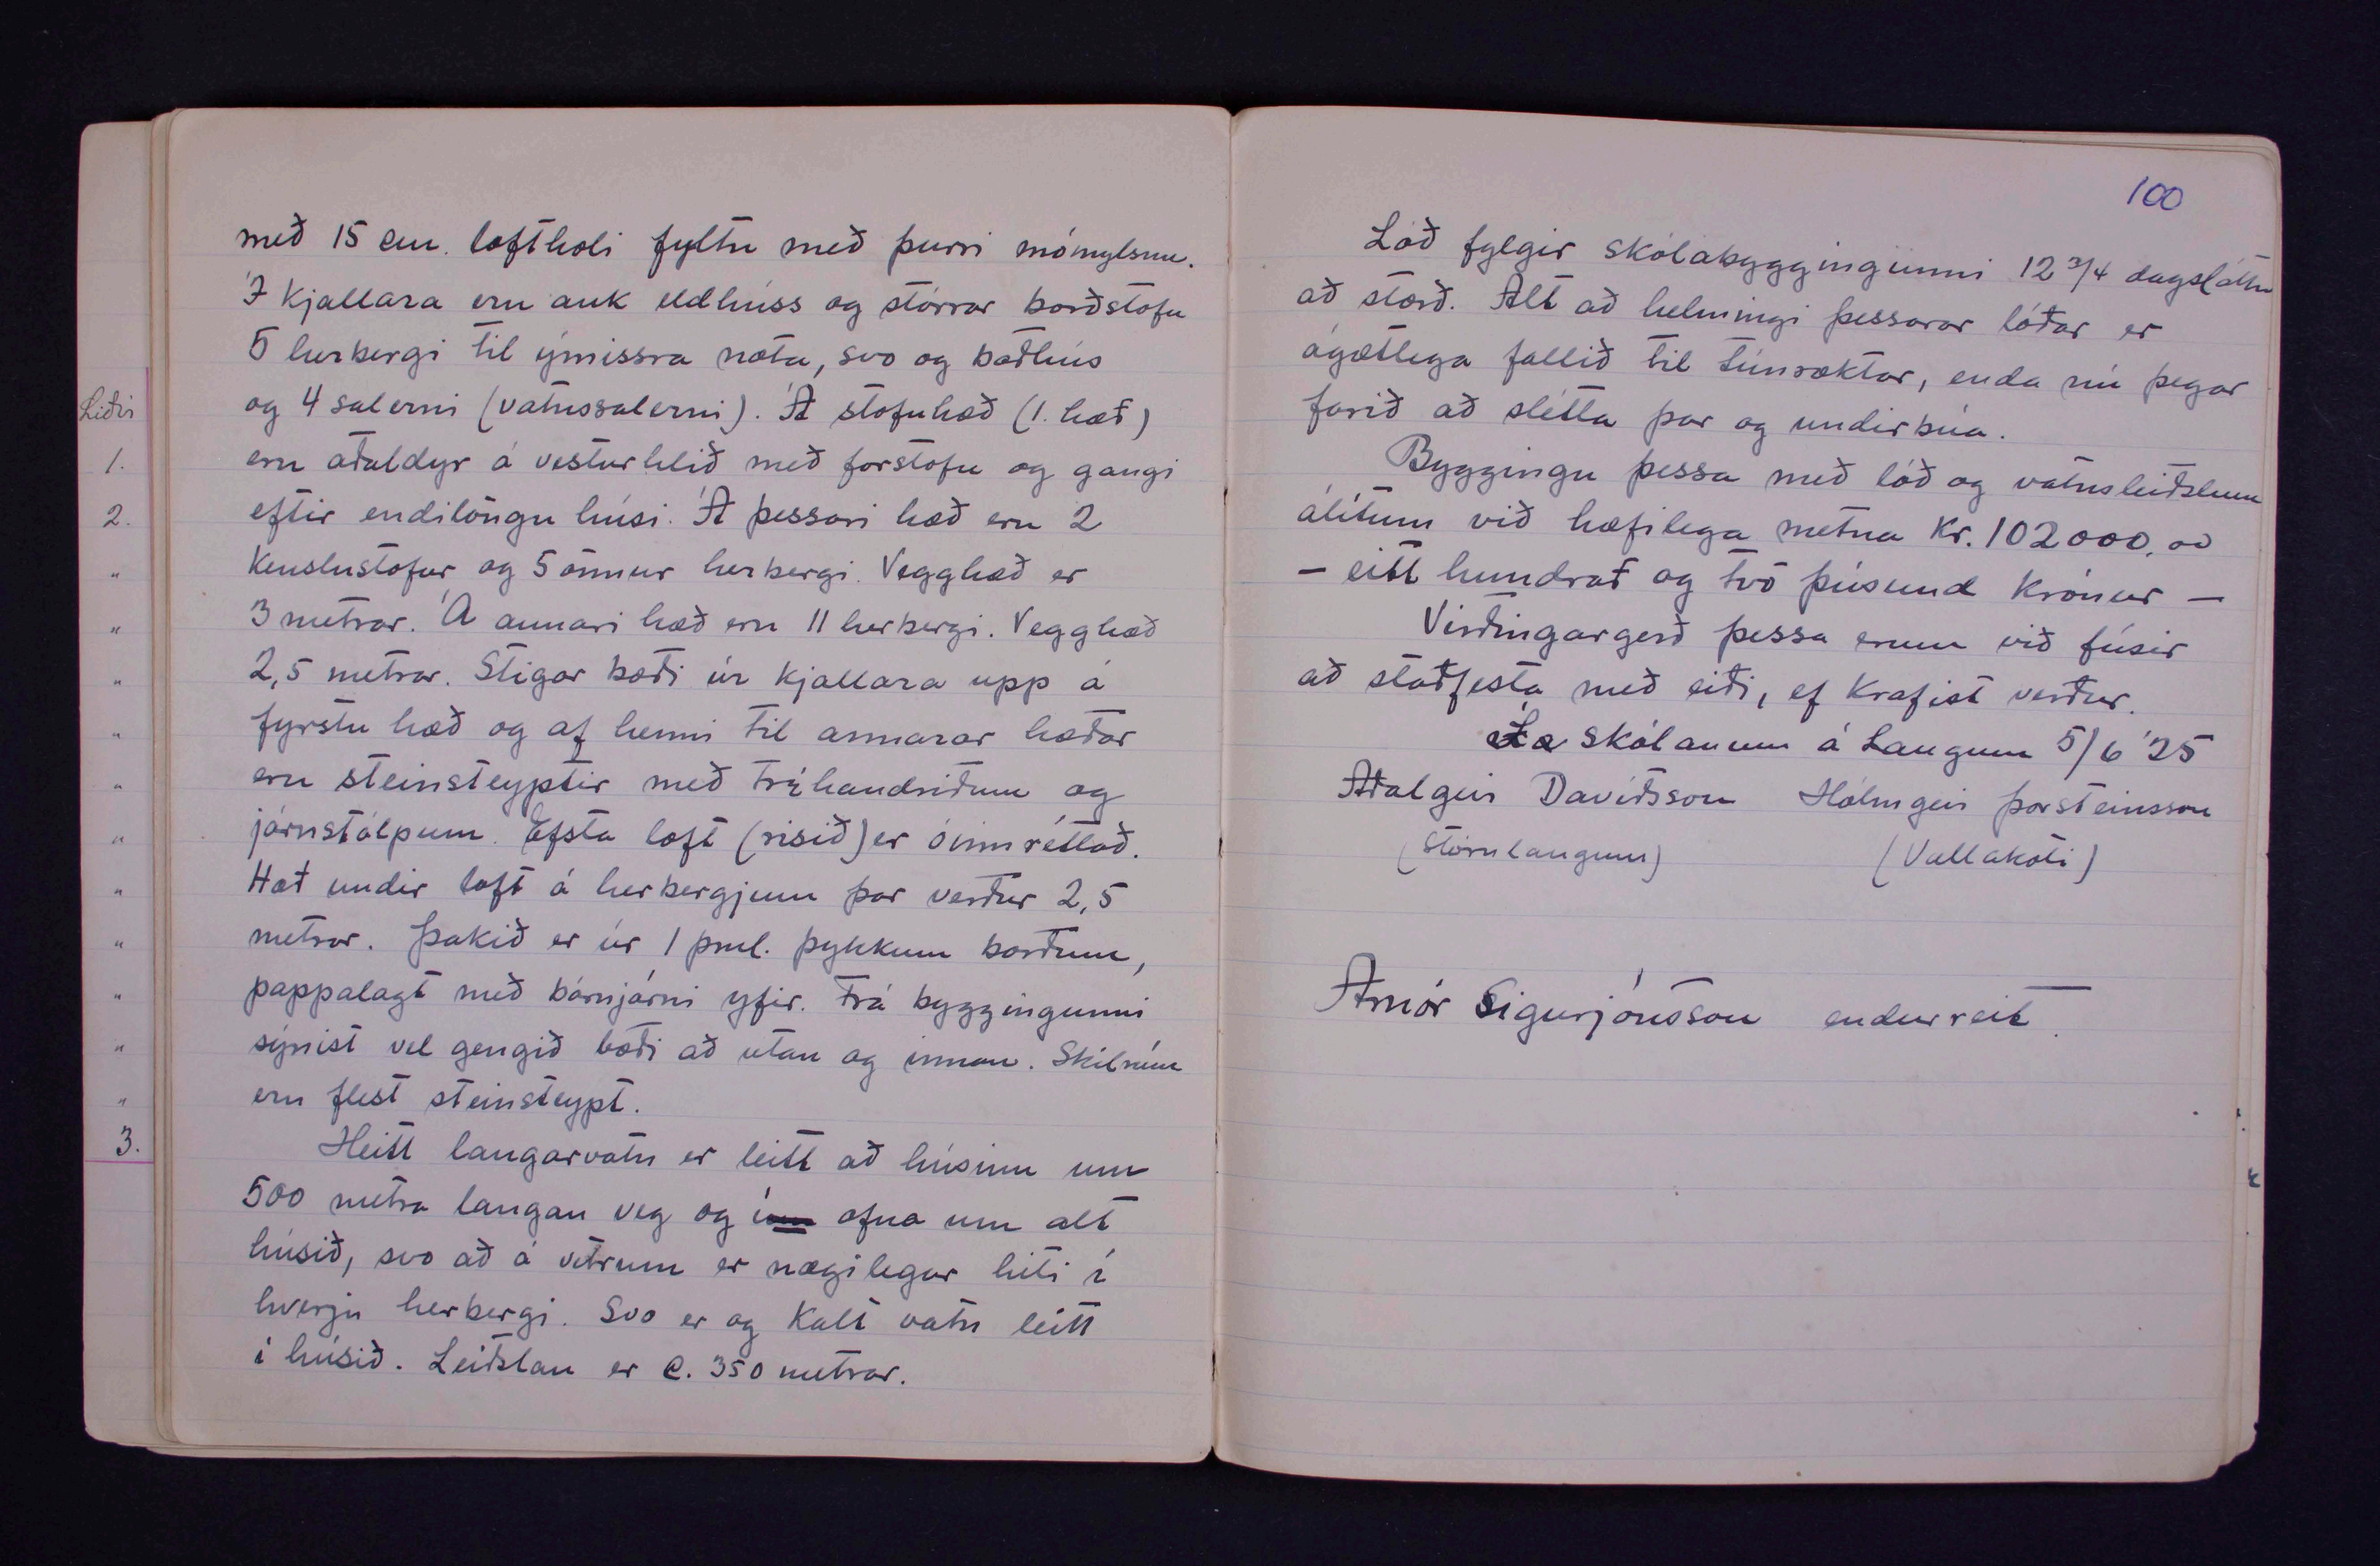 með 15 cm. loftholi fyltu með þurri mómylsnu.
Í kjallara eru auk eldhúss og stórrar borðstofu
5 herbergi til ýmissra nota, svo og baðhús
og 4 salerni (vatnssalerni). Á stofuhæð (1. hæð)
eru aðaldyr á vesturhlið með forstofu og gangi
eftir endilöngu húsi. Á þessari hæð eru 2
kenslustofur og 5 önnur herbergi. Vegghæð er
3 metrar. Á annari hæð eru 11 herbergi. Vegghæð
2,5 metrar. Stigar bæði úr kjallara upp á
fyrstu hæð og af henni til annarar hæðar
eru steinsteyptir með tréhandriðum og
járnstólpum. Efsta loft (risið) er óinnréttað.
Hæð undir loft á herbergjum þar verður 2,5
metrar. Þakið er úr 1 þml. þykkum borðum,
pappalagt með bárujárni yfir. Frá byggingunni
sýnist vel gengið bæði að utan og innan. Skilrúm
eru flest steinsteypt.
Heitt laugarvatn er leitt að húsinu um
500 metra langan veg og ofna um alt
húsið, svo að á vetrum er nægilegur hiti í
hverju herbergi. Svo er og kalt vatn leitt
í húsið. Leiðslan er c. 350 metrar.
Liðir
1.
2.
"
"
"
"
"
"
"
"
"
"
"
3.
100
Lóð fylgir skólabyggingunni 12 3/4 dagsláttu
að stærð. Alt að helmingi þessarar lóðar er
ágætlega fallið til túnræktar, enda nú þegar
farið að slétta þar og undirbúa.
Byggingu þessa með lóð og vatnsleiðslum
álítum við hæfilega metna kr. 102000,00
- eitt hundrað og tvö þúsund krónur -
Virðingargerð þessa erum við fúsir
að staðfesta með eiði, ef krafist verður.
skólanum á Laugum 5/6 '25
Aðalgeir Davíðsson Hólmgeir Þorsteinsson
(Stórulaugum) (Vallakoti)
Arnór Sigurjónsson endurreit.